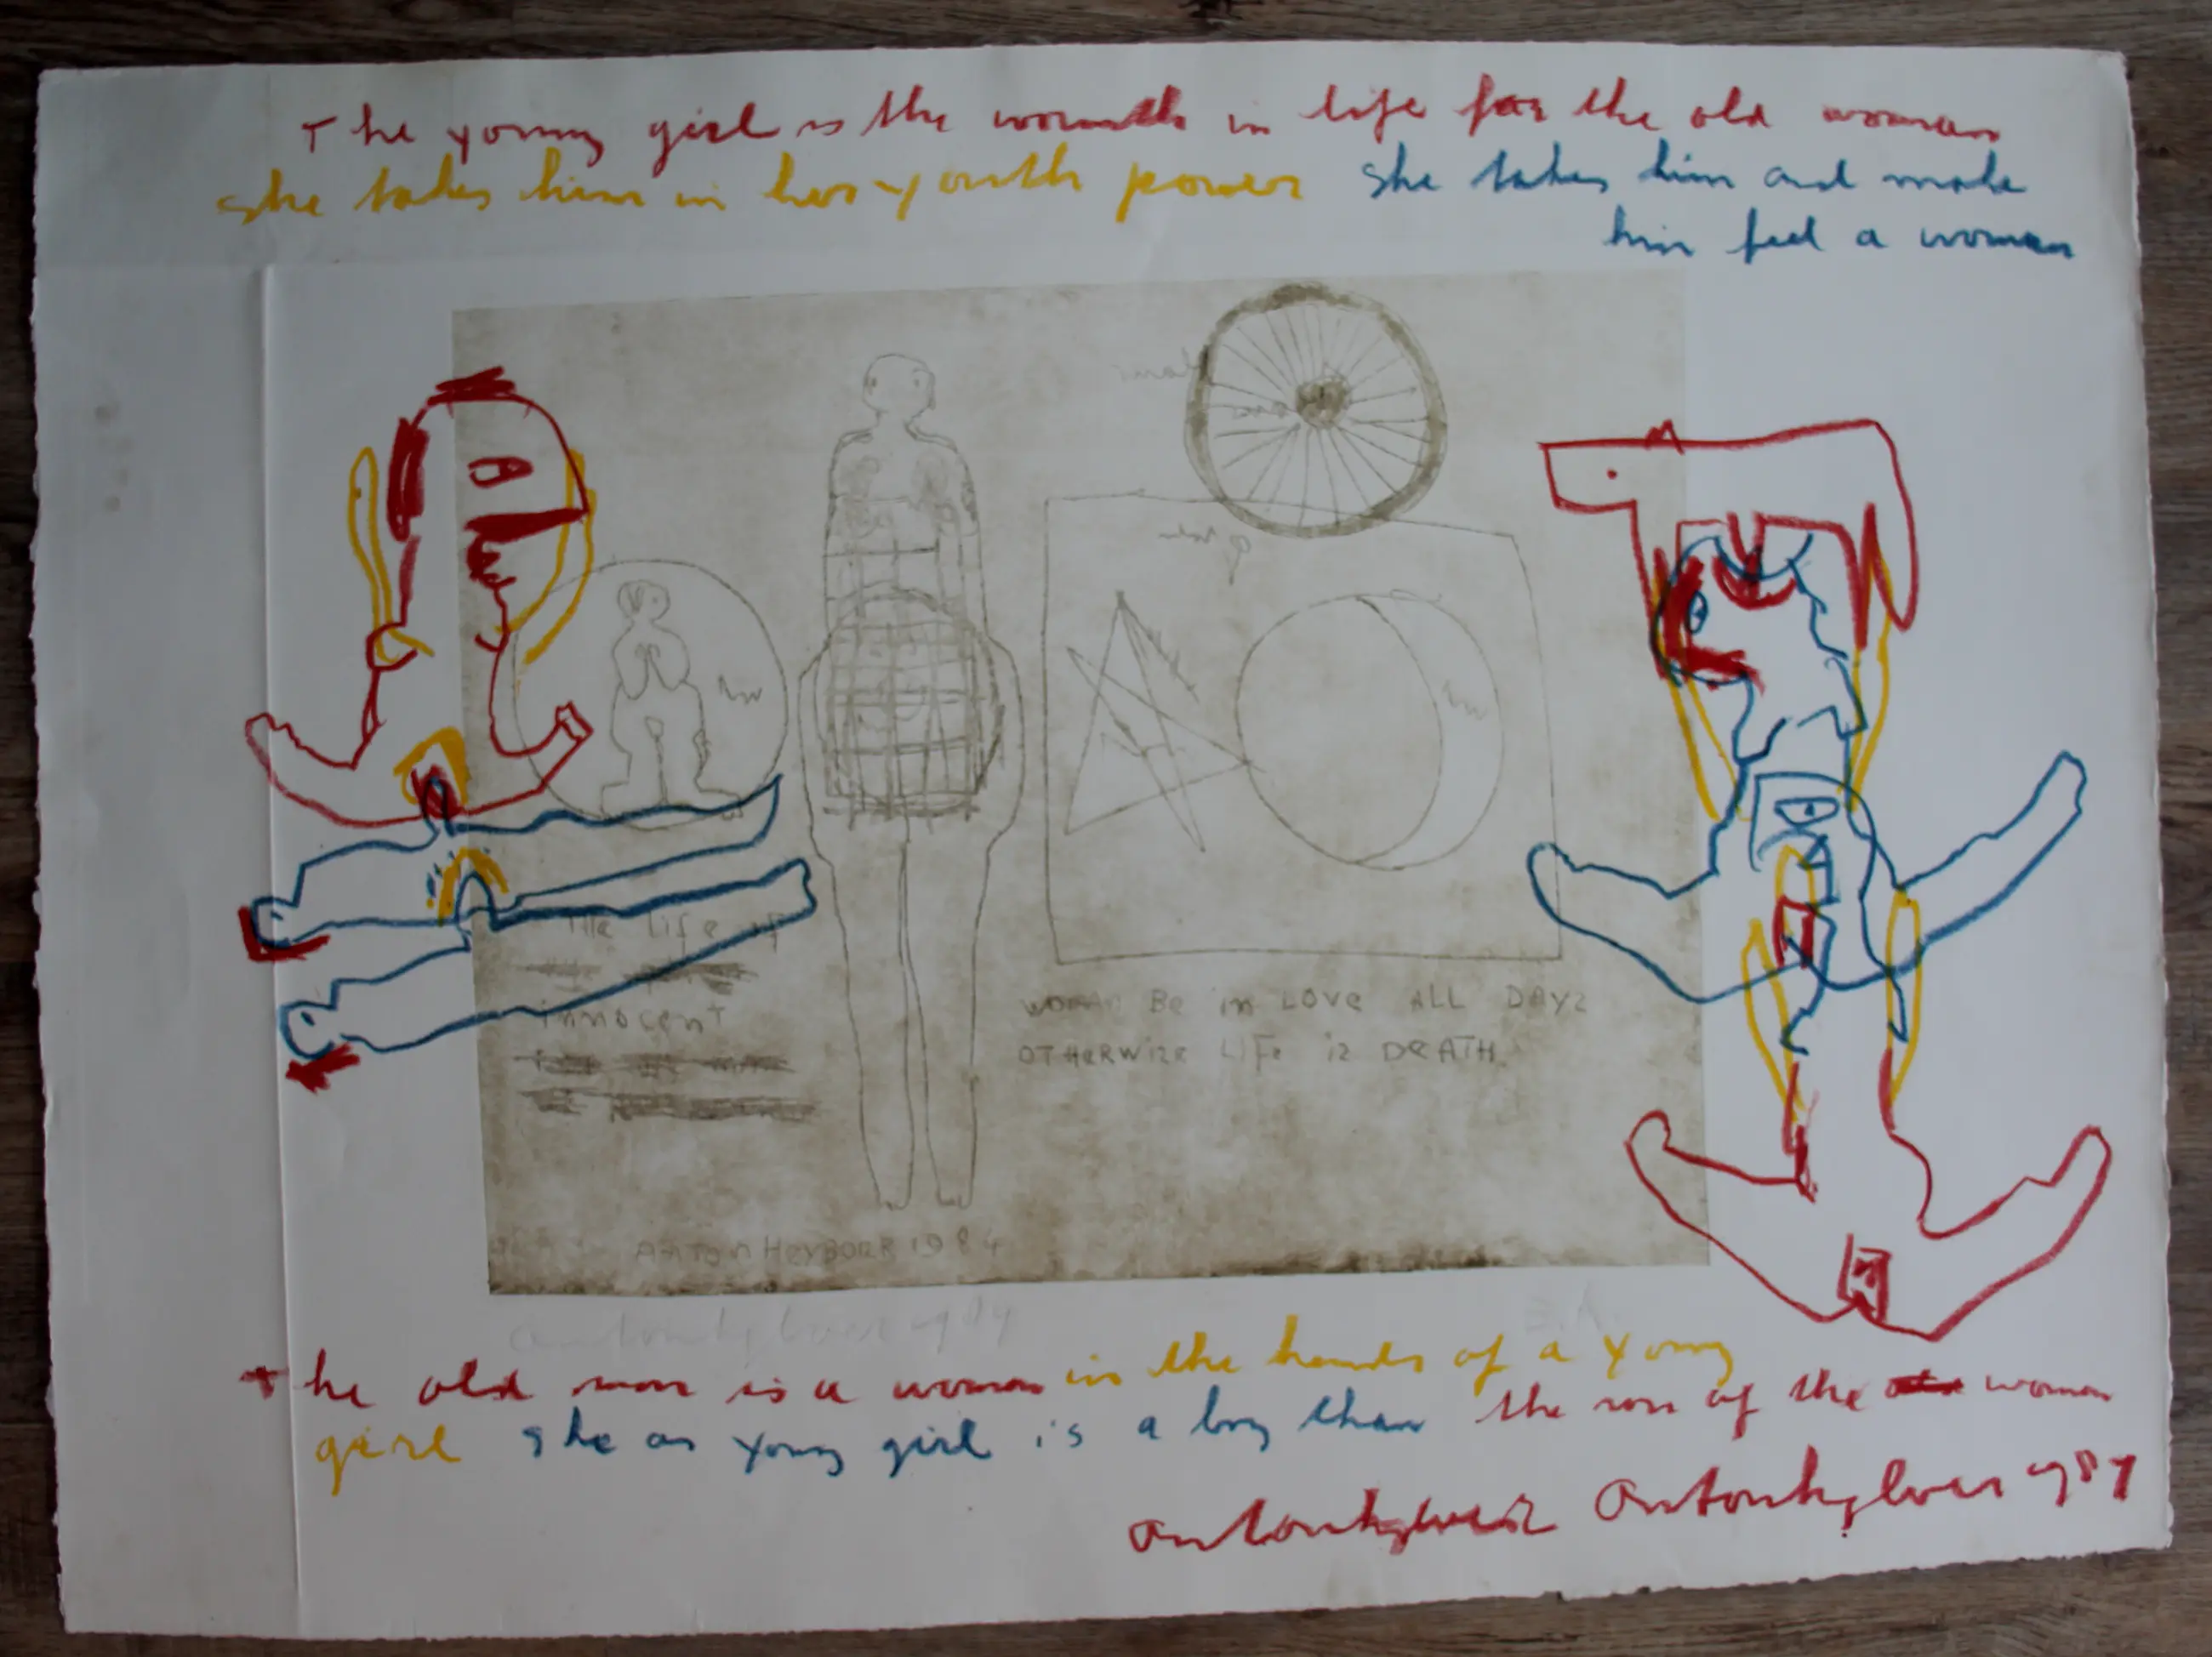 The young girl is the wormth in life for the old woman
she takes him in her youth power she takes him and make
him feel a woman
The life of
innocent
WOMAN BE in LOVE ALL DAYS
OTHERWISE LIFE is DEATH.
ANTON HEYBOER 1984
antonheyboer 1984 E.A.
the old man is a woman in the hands of a young
girl she as young girl is a boy than the son of the woman
antonheyboer antonheyboer 1987